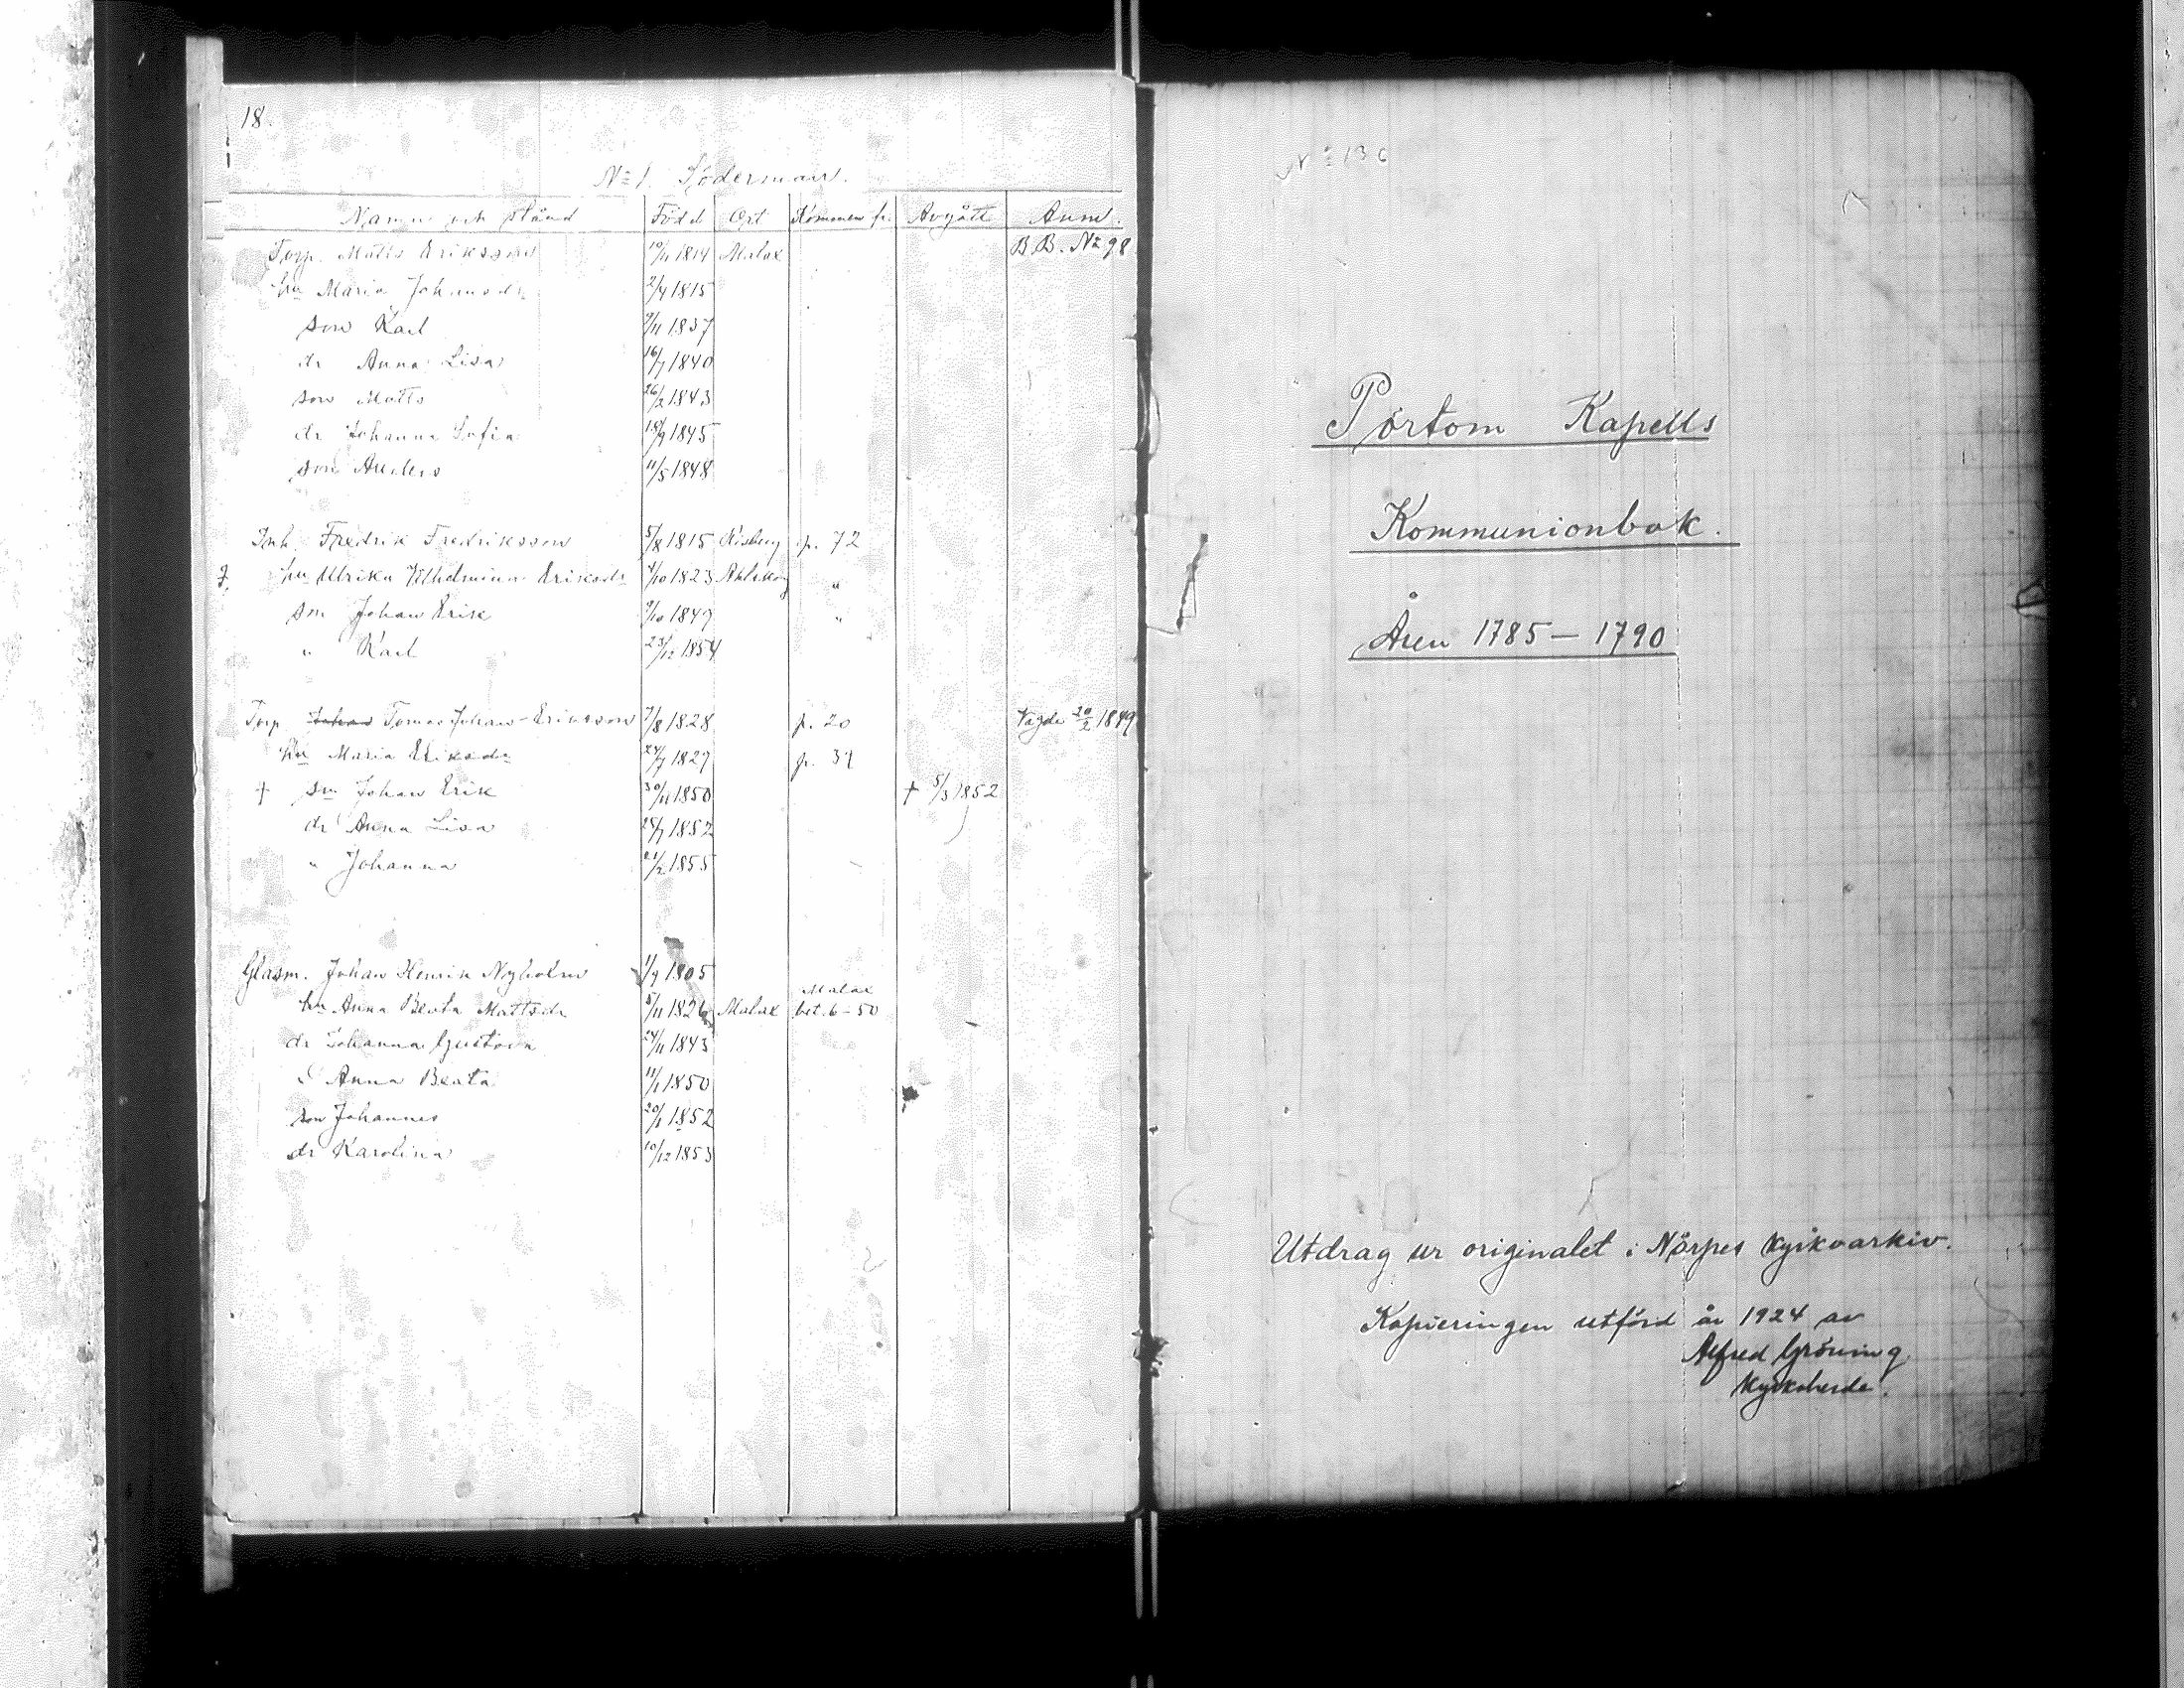 18.
No 1. Söderman.
Namn och stånd Född Ort Kommen fr. Avgått Anm.
Torp. Matts Eriksson 19/11 1814 Malax B.B. No 98
hu Maria Johansdr 2/4 1815
son Karl 9/11 1837
dr Anna Lisa 16/7 1840
son Matts 26/2 1843
dr Johanna Sofia 18/9 1845
son Anders 11/5 1848
Inh. Fredrik Fredriksson 5/8 1815 p. 72
hu Ulrika Vilhelmina Eriksdr 4/10 1823 "
son Johan Erik 9/10 1849 "
" Karl 23/12 1854
Torp Johan Tomas Johan-Eriksson 7/8 1828 p. 20 Vigde 20/2 1849
hu Maria Eriksdr 24/7 1827 p. 34
† son Johan Erik 30/11 1850 † 5/3 1852
dr Anna Lisa 25/7 1852
" Johanna 21/2 1855
Glasm. Johan Henrik Nyholm 1/9 1805
Malax
hu Anna Beata Mattsdr 5/11 1826 Malax bet. 6-50
dr Johanna Gustava 24/11 1843
" Anna Beata 11/1 1850
son Johannes 20/1 1852
dr Karolina 10/12 1853
No 136
Pörtom Kapells
Kommunionbok.
Åren 1785 — 1790
Utdrag ur originalet i Närpes kyrkoarkiv.
Kopieringen utförd år 1924 av
Alfred Gröning
Kyrkoherde.